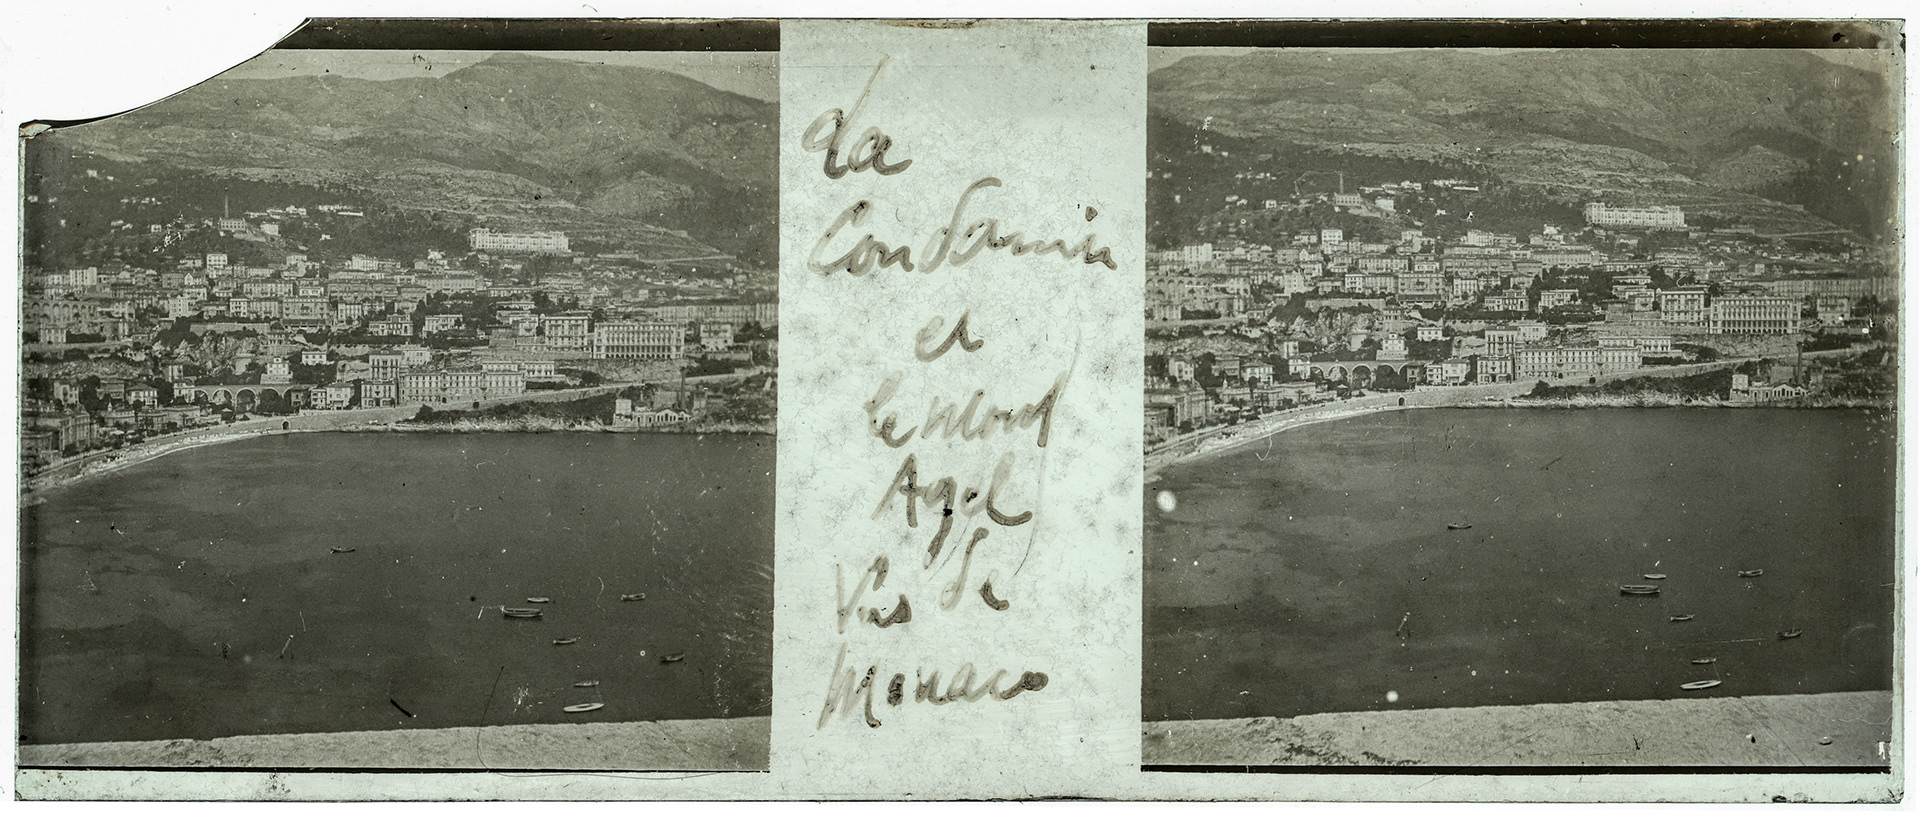 La
Condamin
et
le mont
Agel
Vus de
Monaco